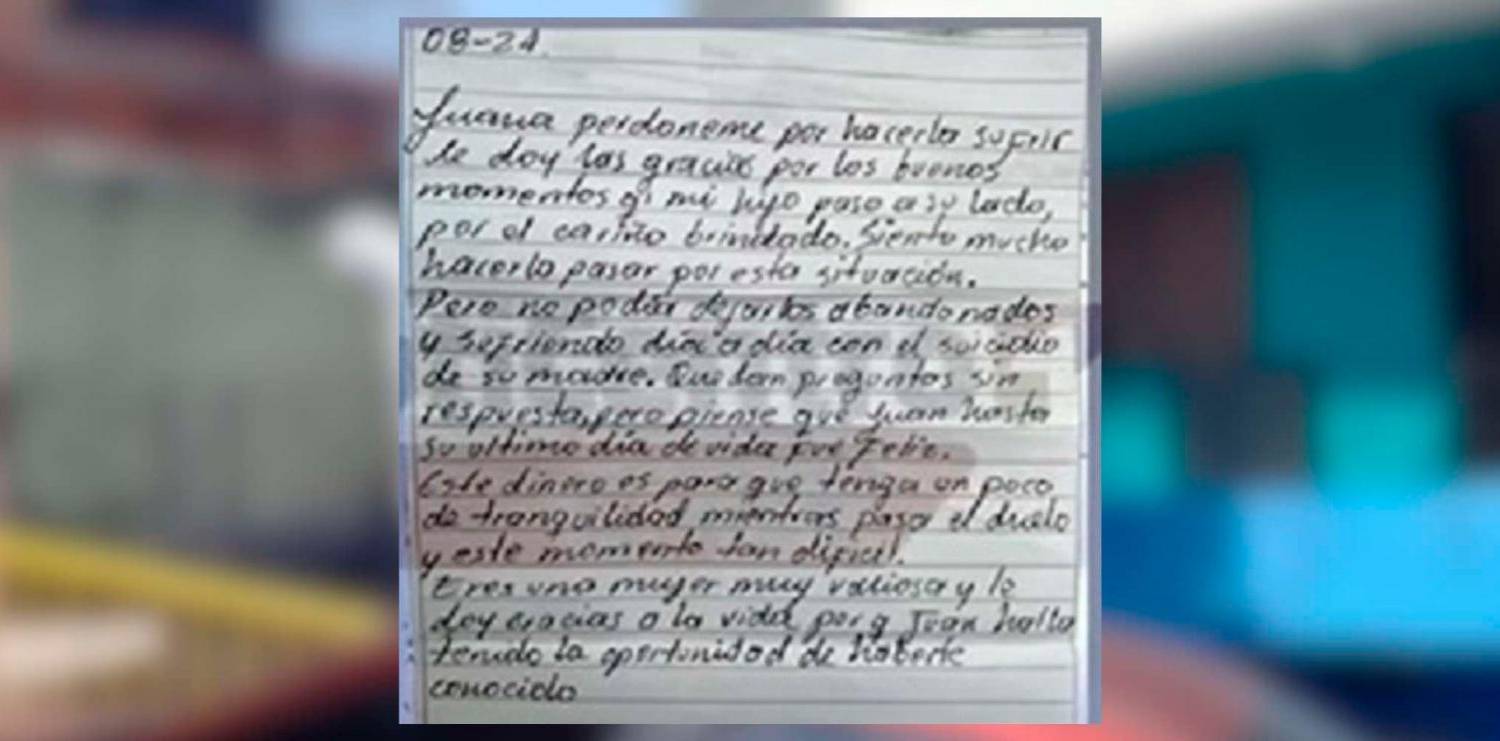 08-24.
Juana perdoneme por hacerla sufrir
le doy las gracias por los buenos
momentos q' mi hijo paso a su lado,
por el cariño brindado. Siento mucho
hacerla pasar por esta situación.
Pero no podia dejarlos abandonados
y sufriendo dia a dia con el suicidio
de su madre. Quedan preguntas sin
respuesta, pero piense que Juan hasta
su ultimo dia de vida fue feliz.
Este dinero es para que tenga un poco
de tranquilidad mientras pasa el duelo
y este momento tan dificil.
Eres una mujer muy valiosa y le
doy gracias a la vida porq Juan halla
tenido la oportunidad de haberte
conocido